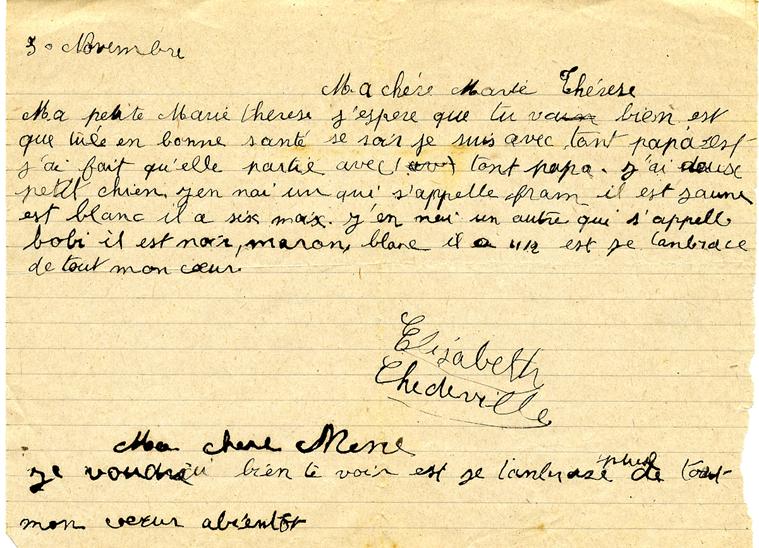 30 Novembre
Ma chére Marie Thérèse
Ma petite Marie therese j'espere que tu bien est
que tùée en bonne santé se soir je suis avec tant papa est
j'ai fait qu'elle partie avec tant papa. j'ai deux
petit chien j'en nai un qui s'appelle fram il est jaune
est blanc il a six max. j'en nai un autre qui s'appell
bobi il est noir, maron, blanc il a est je t'anbrace
de tout mon cœur
Elisabeth
Chedeville
Ma chere Mere
je voudrai bien te voir est je t'anbrase plus de tout
mon coeur abientot